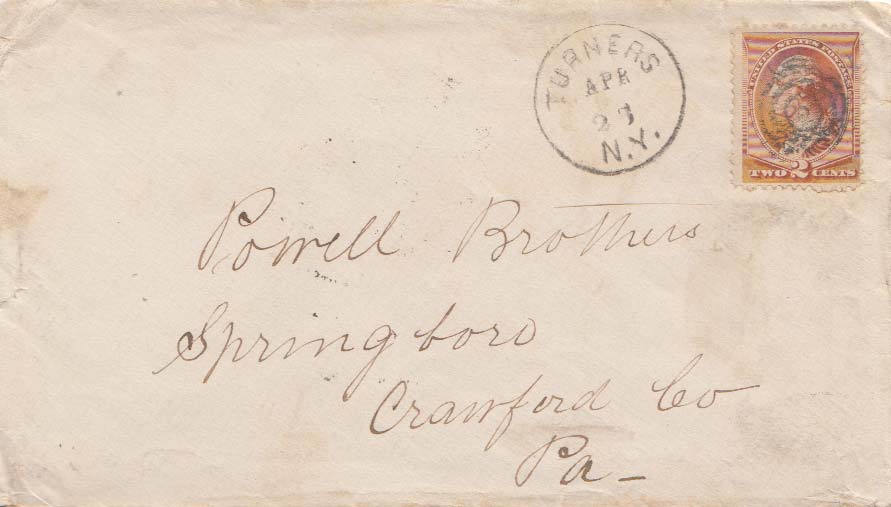 TURNERS
APR
23
N.Y.
UNITED STATES POSTAGE
TWO 2 CENTS
Powell Brothers
Springboro
Crawford Co
Pa-